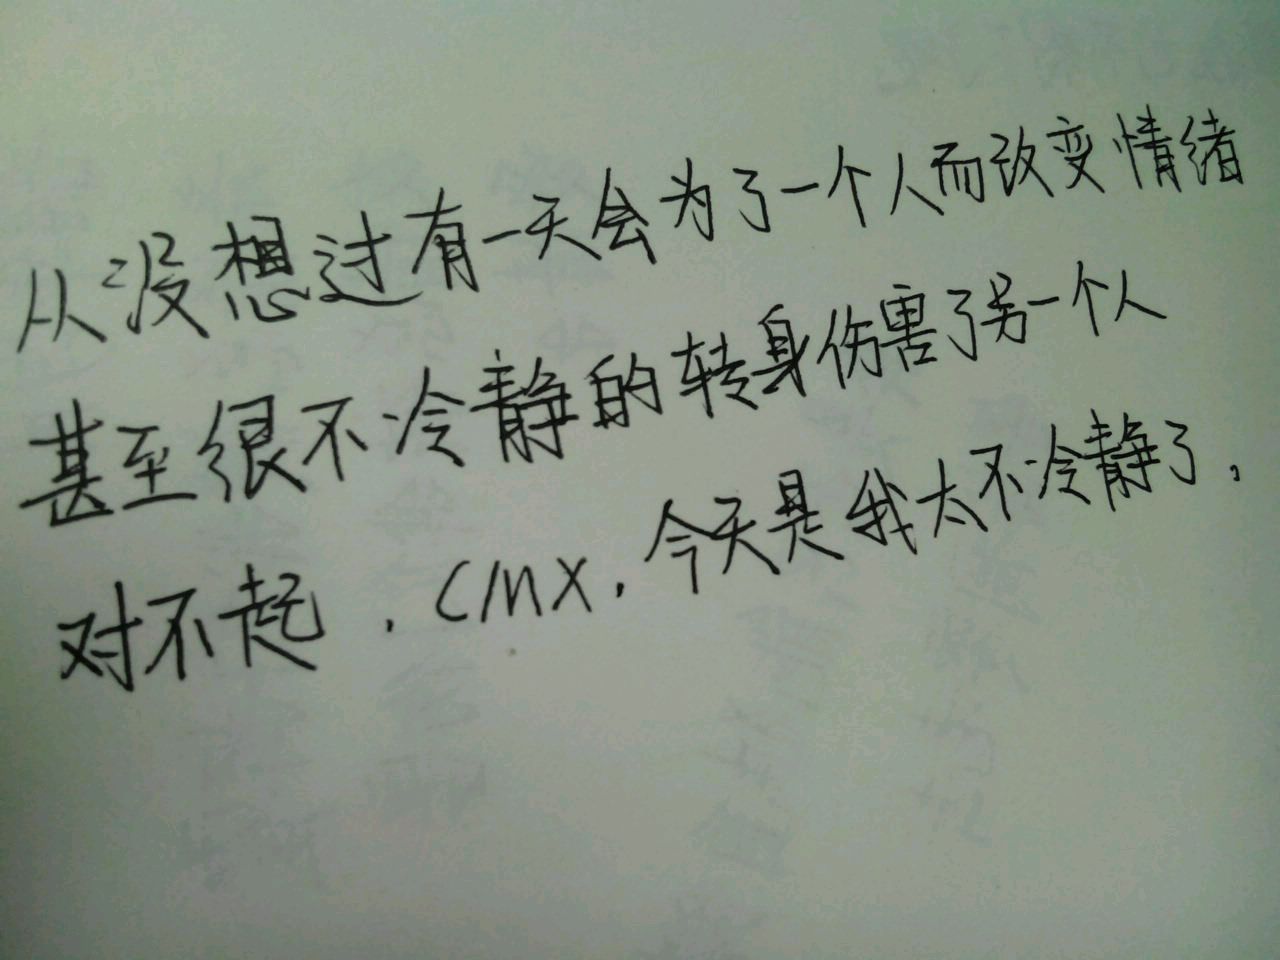 从没想过有一天会为了一个人而改变情绪
甚至很不冷静的转身伤害了另一个人
对不起.CMX.今天是我太不冷静了,